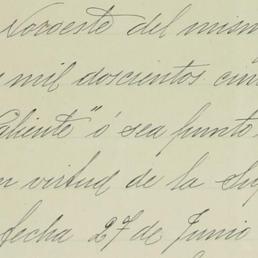 Noroeste del mism
mil doscientos cin
Caliente" ó sea punto
n virtud de la Sup
fecha 27 de Junio